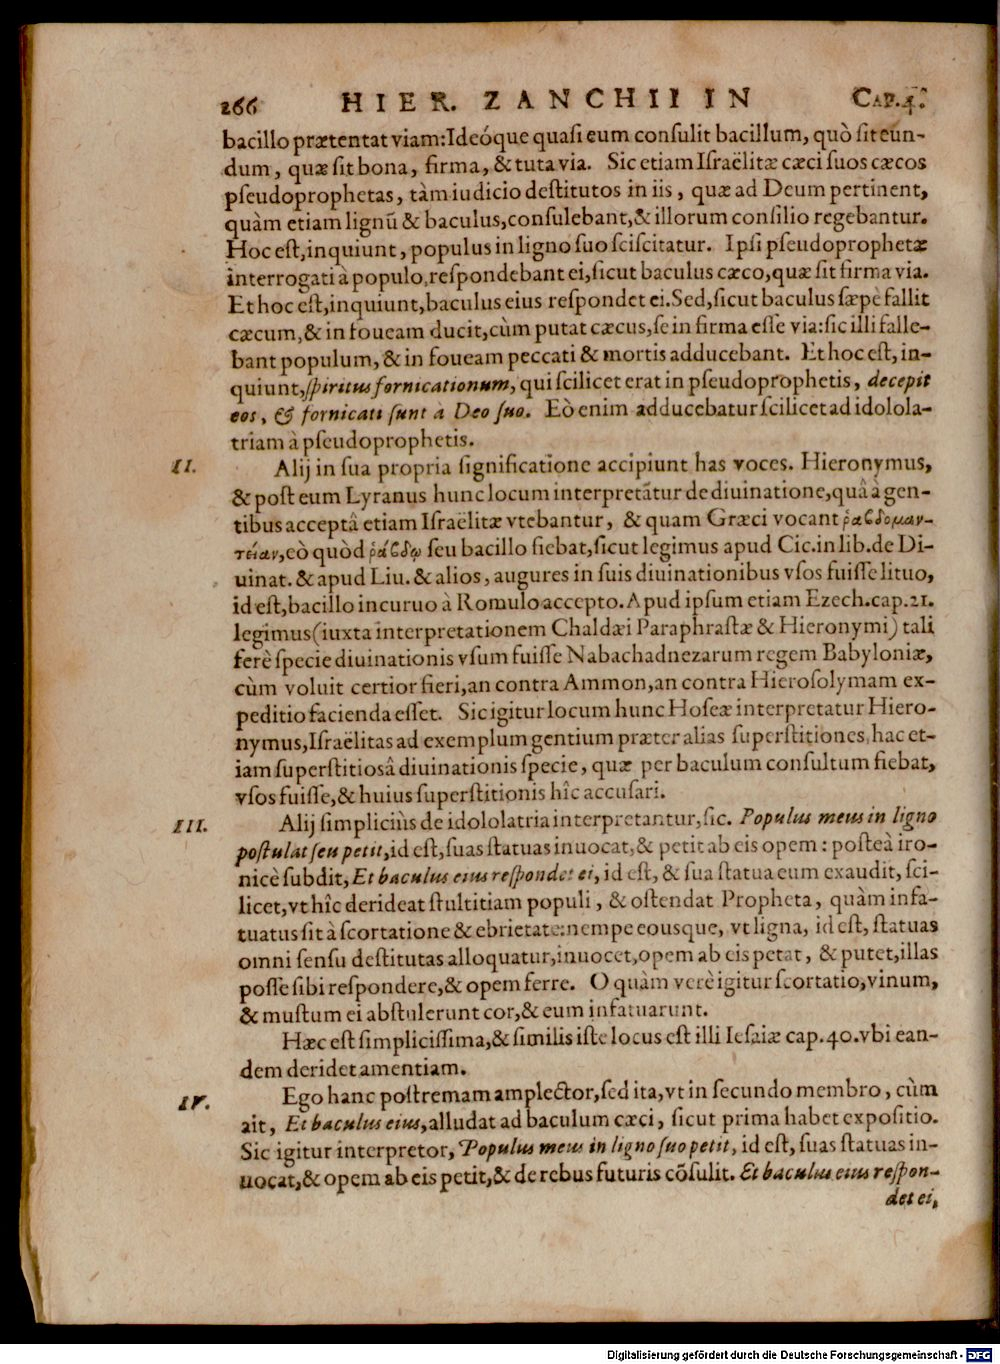 266 HIER. ZANCHII IN CAP. 4.
bacillo prætentat viam: Ideóque quasi eum consulit bacillum, quò sit eun-
dum, quæ sit bona, firma, & tuta via. Sic etiam Israëlitæ cæci suos cæcos
pseudoprophetas, tàm iudicio destitutos in iis, quæ ad Deum pertinent,
quàm etiam lignũ & baculus, consulebant, & illorum consilio regebantur.
Hoc est, inquiunt, populus in ligno suo sciscitatur. Ipsi pseudoprophetæ
interrogati à populo, respondebant ei, sicut baculus cæco, quæ sit firma via.
Et hoc est, inquiunt, baculus eius respondet ei. Sed, sicut baculus sæpè fallit
cæcum, & in foueam ducit, cùm putat cæcus, se in firma esse via: sic illi falle-
bant populum, & in foueam peccati & mortis adducebant. Et hoc est, in-
quiunt, spiritus fornicationum, qui scilicet erat in pseudoprophetis, decepit
eos, & fornicati sunt à Deo suo. Eò enim adducebatur scilicet ad idolola-
triam à pseudoprophetis.
II. Alij in sua propria significatione accipiunt has voces. Hieronymus,
& post eum Lyranus hunc locum interpretãtur de diuinatione, quâ à gen-
tibus acceptâ etiam Israëlitæ vtebantur, & quam Græci vocant ῥαβδομαν-
τείαν, eò quòd ῥάβδῳ seu bacillo fiebat, sicut legimus apud Cic. in lib. de Di-
uinat. & apud Liu. & alios, augures in suis diuinationibus vsos fuisse lituo,
id est, bacillo incuruo à Romulo accepto. Apud ipsum etiam Ezech. cap. 21.
legimus (iuxta interpretationem Chaldæi Paraphrastæ & Hieronymi) tali
ferè specie diuinationis vsum fuisse Nabachadnezarum regem Babyloniæ,
cùm voluit certior fieri, an contra Ammon, an contra Hierosolymam ex-
peditio facienda esset. Sic igitur locum hunc Hoseæ interpretatur Hiero-
nymus, Israëlitas ad exemplum gentium præter alias superstitiones, hac et-
iam superstitiosâ diuinationis specie, quæ per baculum consultum fiebat,
vsos fuisse, & huius superstitionis hîc accusari.
III. Alij simpliciùs de idololatria interpretantur, sic. Populus meus in ligno
postulat seu petit, id est, suas statuas inuocat, & petit ab eis opem: posteà iro-
nicè subdit, Et baculus eius respondet ei, id est, & sua statua eum exaudit, sci-
licet, vt hîc derideat stultitiam populi, & ostendat Propheta, quàm infa-
tuatus sit à scortatione & ebrietate: nempe eousque, vt ligna, id est, statuas
omni sensu destitutas alloquatur, inuocet, opem ab eis petat, & putet, illas
posse sibi respondere, & opem ferre. O quàm verè igitur scortatio, vinum,
& mustum ei abstulerunt cor, & eum infatuarunt.
Hæc est simplicissima, & similis iste locus est illi Iesaiæ cap. 40. vbi ean-
dem deridet amentiam.
IV. Ego hanc postremam amplector, sed ita, vt in secundo membro, cùm
ait, Et baculus eius, alludat ad baculum cæci, sicut prima habet expositio.
Sic igitur interpretor, Populus meus in ligno suo petit, id est, suas statuas in-
uocat, & opem ab eis petit, & de rebus futuris cõsulit. Et baculus eius respon-
det ei,
Digitalisierung gefördert durch die Deutsche Forschungsgemeinschaft - DFG